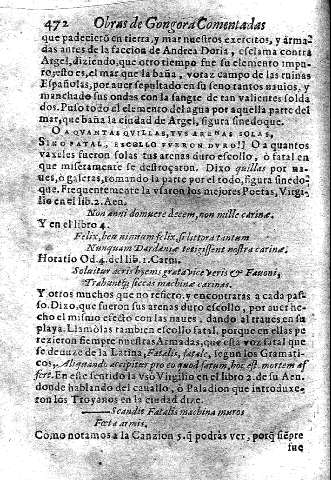 472 Obras de Gongora Comentadas
que padecierõ en tierra, y mar nuestros exercitos, y arma-
das antes de la faccion de Andrea Doria, esclama contra
Argel, diziendo, que otro tiempo fue su elemento impu-
ro, esto es, el mar que la baña, voraz campo de las ruinas
Españolas, por auer sepultado en su seno tantos nauios, y
manchado sus ondas con la sangre de tan valientes solda
dos. Puso todo el elemento del agua por aquella parte del
mar, que baña la ciudad de Argel, figura sinedoque.
O A QVANTAS QVILLAS, TVS ARENAS SOLAS,
SINO FATAL, ESCOLLO FVERON DVRO!] O a quantos
vaxeles fueron solas tus arenas duro escollo, ò fatal en
que miseramente se destroçaron. Dixo quillas por na-
ues, ò galeras, tomando la parte por el todo, figura sinedo-
que. Frequentemente la vsaron los mejores Poetas, Virgi-
lio en el lib. 2. Aen.
Non anni domuere decem, non mille carinæ.
Y en el libro 4.
Felix, heu nimium felix, si littora tantum
Nunquam Dardaniæ tetigissent nostra carinæ.
Horatio Od. 4. del lib. 1. Carm.
Soluitur acris hyems grata vice veris & Fauoni,
Trahuntq; siccas machinæ carinas.
Y otros muchos que no refiero, y encontraras a cada pas-
so. Dixo, que fueron sus arenas duro escollo, por auer he-
cho el mismo efecto con las naues, dando al traues en su
playa. Llamòlas tambien escollo fatal, porque en ellas pe
rezieron siempre nuestras Armadas, que esta voz fatal que
se deduze de la Latina, Fatalis, fatale, segun los Gramati-
cos, Aliquando accipitur pro eo quod fatum, hoc est mortem af
fere. En este sentido la vsò Virgilio en el libro 2. de su Aen.
donde hablando del cauallo, ò Paladion que introduxe-
ron los Troyanos en la ciudad dize.
Scandit Fatalis machina muros
Fœta armis.
Como notamos a la Canzion 5. q̃ podràs ver, porq̃ siẽpre
fue